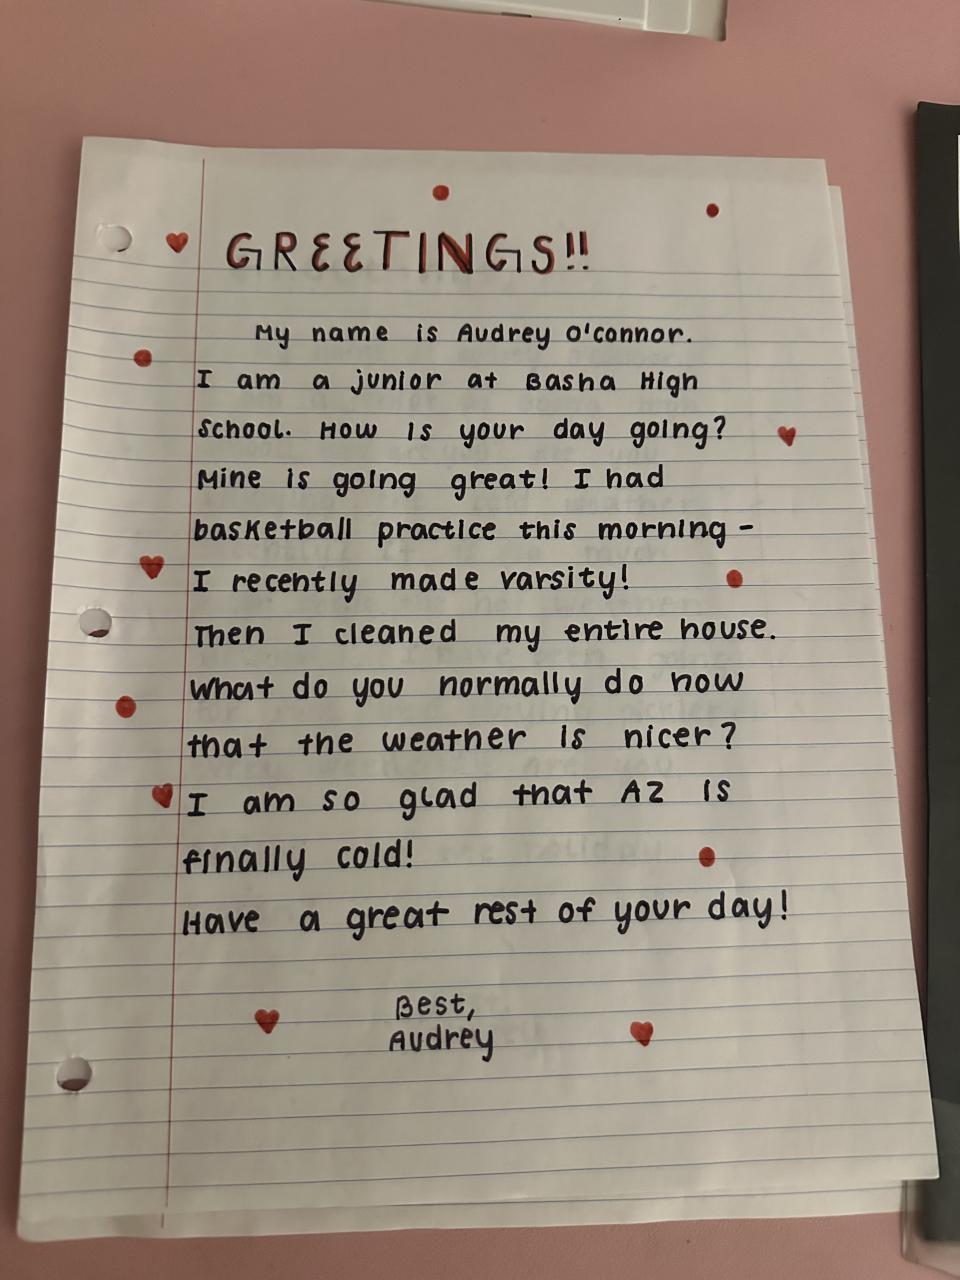 GREETINGS!!
My name is Audrey O'connor.
I am a junior at Basha High
School. How is your day going?
Mine is going great! I had
basketball practice this morning -
I recently made varsity!
Then I cleaned my entire house.
What do you normally do now
that the weather is nicer?
I am so glad that AZ is
finally cold!
Have a great rest of your day!
Best,
Audrey